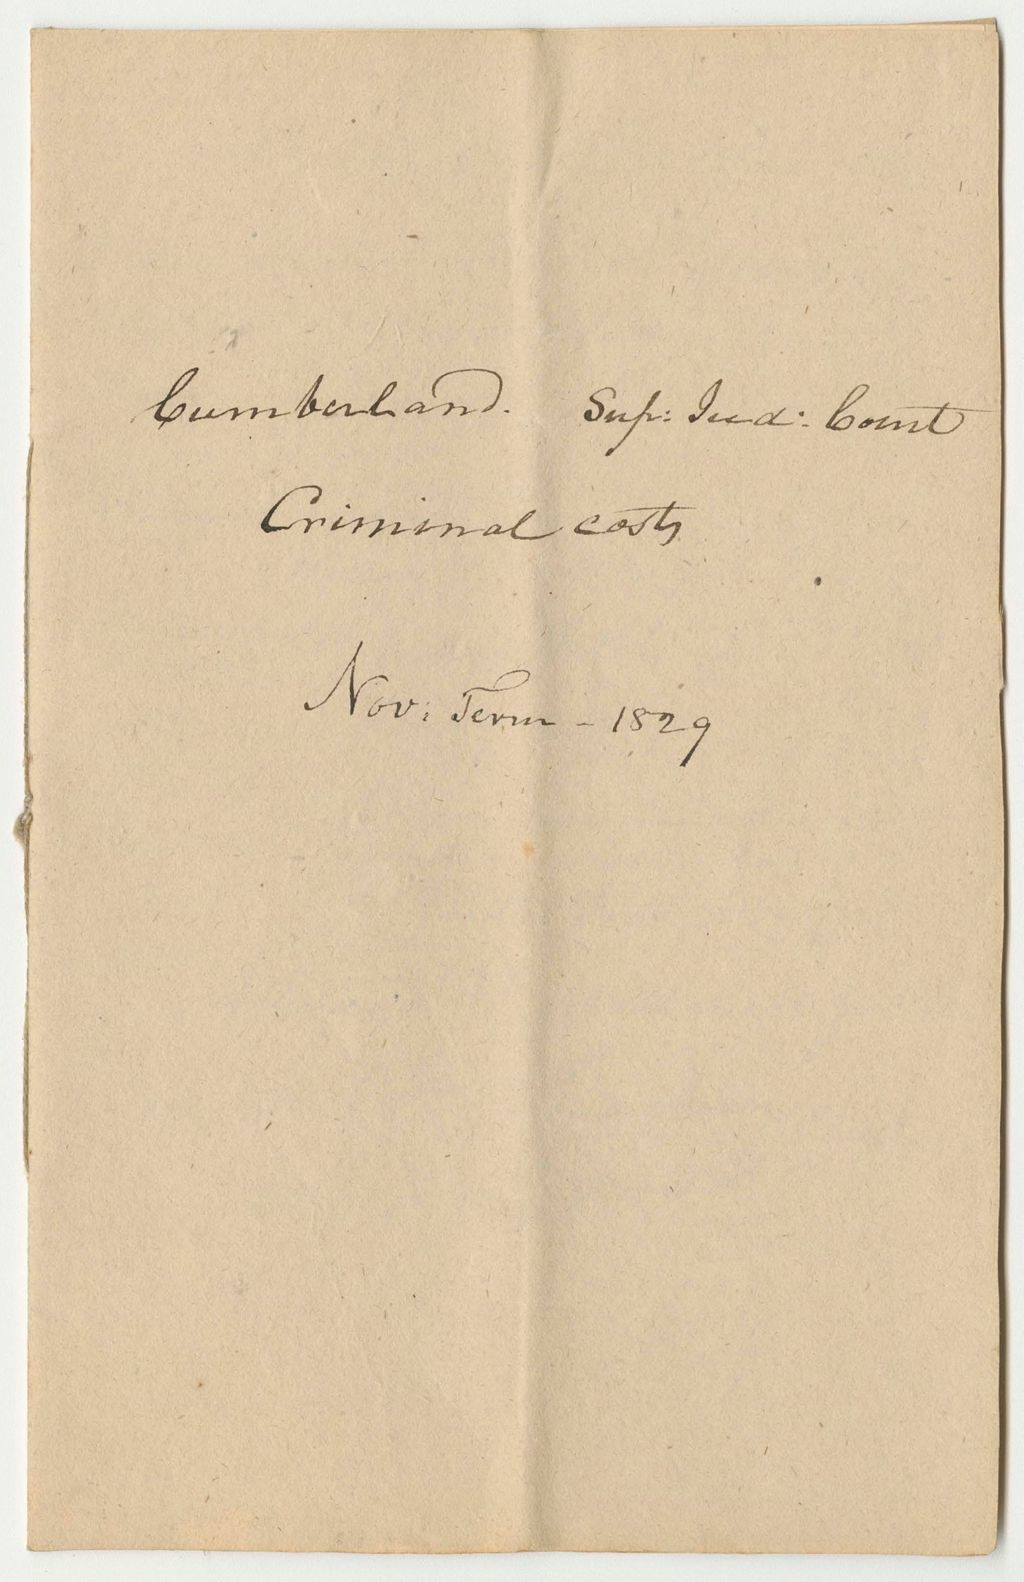 Cumberland. Sup: Jud: Court
Criminal costs
Nov: Term - 1829